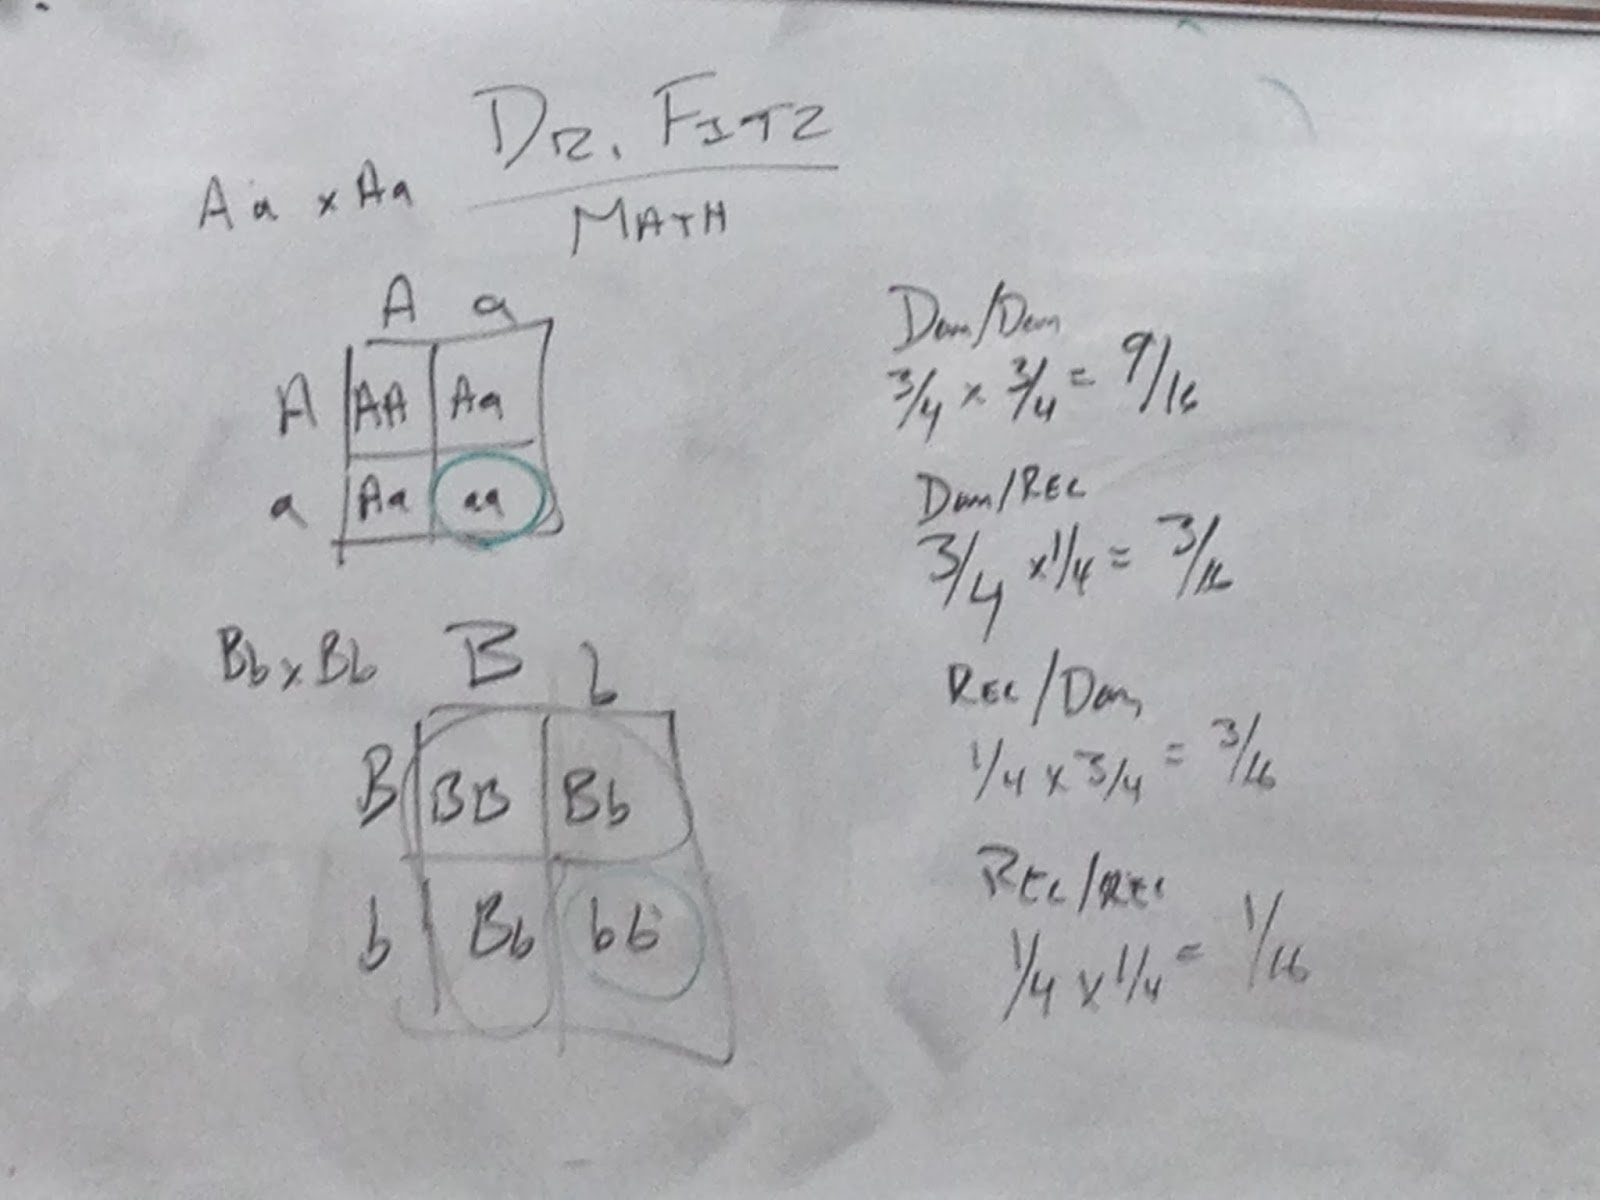 Dr. Fitz
Math
Aa x Aa
A a
A AA Aa
a Aa aa
Bb x Bb
B b
B BB Bb
b Bb bb
Dom/Dom
3/4 x 3/4 = 9/16
Dom/Rec
3/4 x 1/4 = 3/16
Rec/Dom
1/4 x 3/4 = 3/16
Rec/Rec
1/4 x 1/4 = 1/16